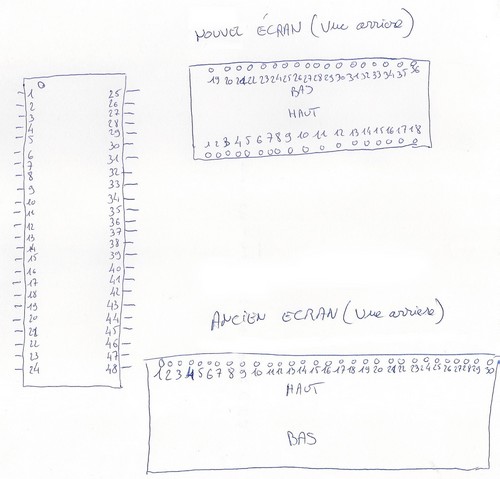 NOUVEL ÉCRAN (Vue arrière)
19 20 21 22 23 24 25 26 27 28 29 30 31 32 33 34 35 36
BAS
HAUT
1 2 3 4 5 6 7 8 9 10 11 12 13 14 15 16 17 18
1 25
2 26
3 27
4 28
5 29
6 30
7 31
8 32
9 33
10 34
11 35
12 36
13 37
14 38
15 39
16 40
17 41
18 42
19 43
20 44
21 45
22 46
23 47
24 48
ANCIEN ECRAN (Vue arrière)
1 2 3 4 5 6 7 8 9 10 11 12 13 14 15 16 17 18 19 20 21 22 23 24 25 26 27 28 29 30
HAUT
BAS